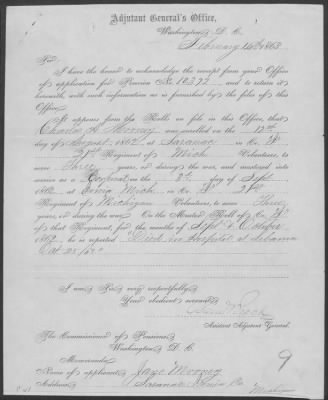 Adjutant General's Office,
Washington, D. C.
February 14th 1863
Sir:
I have the honor to acknowledge the receipt from your Office
of application for Pension No. 10373 and to return it
herewith, with such information as is furnished by the files of this
Office.
It appears from the Rolls on file in this Office, that
Charles A. Morray was enrolled on the 12th
day of August, 1862, at Saranac in Co.
Regiment of Mich Volunteers, to
serve Three years, or during the war, and mustered into
service as a Corporal on the 8th day of Sept
1862, at Ionia Mich, in Co.
Regiment of Michigan Volunteers, to serve Three
years, or during the war. On the Muster Roll of Co.
of that Regiment, for the months of Sept & October
1862, he is reported Died in hospital at Lebanon
Oct 25/62
I am, Sir, very respectfully,
Your obedient servant,
Assistant Adjutant General.
The Commissioner of Pensions,
Washington, D. C.
Memoranda:
Name of applicant, Jane Morray
Address, Saranac Ionia Co.
Michigan
9